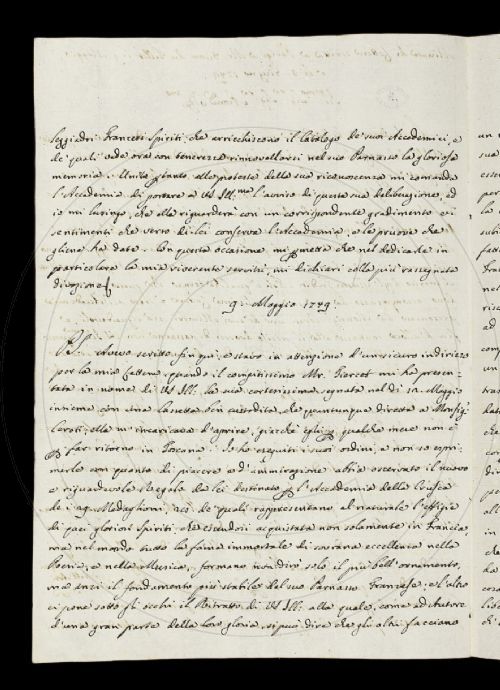 leggiadri Francesi Spiriti, che arricchiscono il Catalogo de' suoi Accademici, e
de' quali vede ora con tenerezza rinnovellarsi nel suo Parnasso la gloriosa
memoria. Unita alle proteste della sua riconoscenza mi comanda
l'Accademia di portare a VS Ill.ma l'avviso di questa sua deliberazione, ed
io mi lusingo, che ella riguarderà con un corrispondente gradimento e i
sentimenti che verso di lei conserva l'Accademia, e le pruove che
gliene ha date. Con questa occasione mi permetta che nel dedicarle in
particolare la mia riverente servitù, mi dichiari colla più rassegnata
divozione
9. Maggio 1749
PS. Avevo scritto fin qui, e stavo in attenzione d'un sicuro indirizzo
per la mia lettera, quando il compitissimo Mr. mi ha presen-
tata in nome di VS Ill. la sua cortesissima segnata nel dì 12. Maggio
insieme con una cassetta ben custodita, che quantunque diretta a Monsig.
Cerati, ella m'incaricava d'aprire, giacchè egli per qualche mese non è
per far ritorno in Toscana. Io ho eseguiti i suoi ordini, e non so espri-
merle con quanto di piacere e d'ammirazione abbia osservato il nuovo
e riguardevole Regalo da lei destinato per l'Accademia della
de i Medaglioni, de' quali rappresentano al naturale l'effigie
di gloriosi Spiriti, che essendosi acquistata non solamente in Francia,
ma nel mondo tutto la fama immortale di sovrana eccellenza nella
Poesia, e nella Musica, formano non dirò solo il più bell'ornamento,
ma anzi il fondamento più stabile del suo Parnasso Franzese, e l'altro
ci pone sotto gli occhi il Ritratto di VS Ill. alla quale, come ad Autore
d'una gran parte della loro gloria, si può dire che gli altri facciano